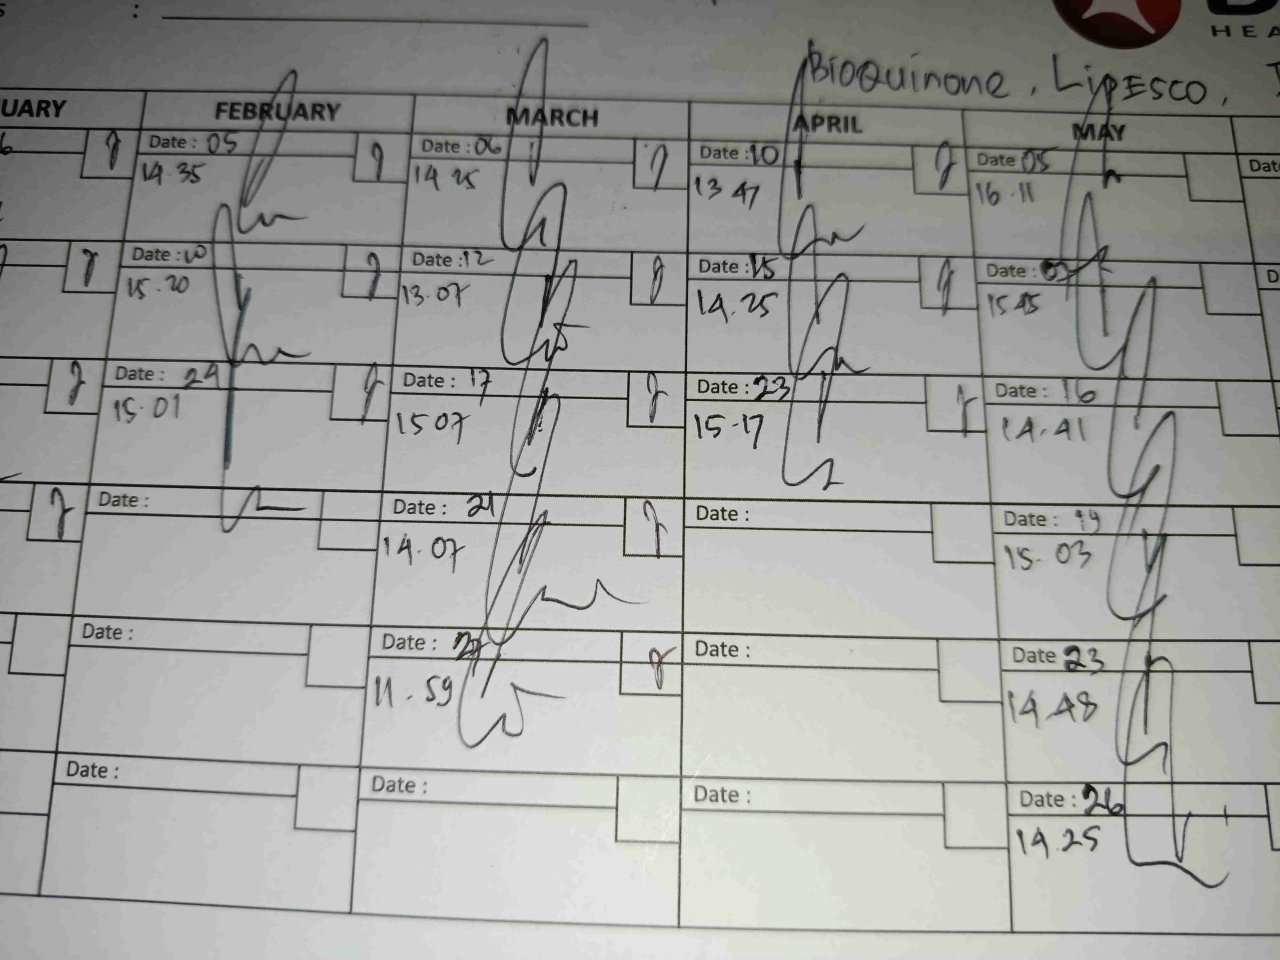 HEA
BioQuinone, LipESCO,
UARY FEBRUARY MARCH APRIL MAY
Date : 05 Date : 06 Date : 10 Date 05 Dat
14.35 14 25 13 47 16.11
Date : 10 Date : 12 Date : 15 Date : D
15.20 13.07 14.25 15 45
Date : 24 Date : 17 Date : 23 Date : 16
15.01 15 07 15.17 14.41
Date : Date : 21 Date : Date : 19
14.07 15.03
Date : Date : 27 Date : Date 23
11.59 14.48
Date : Date : Date : Date : 26
14.25